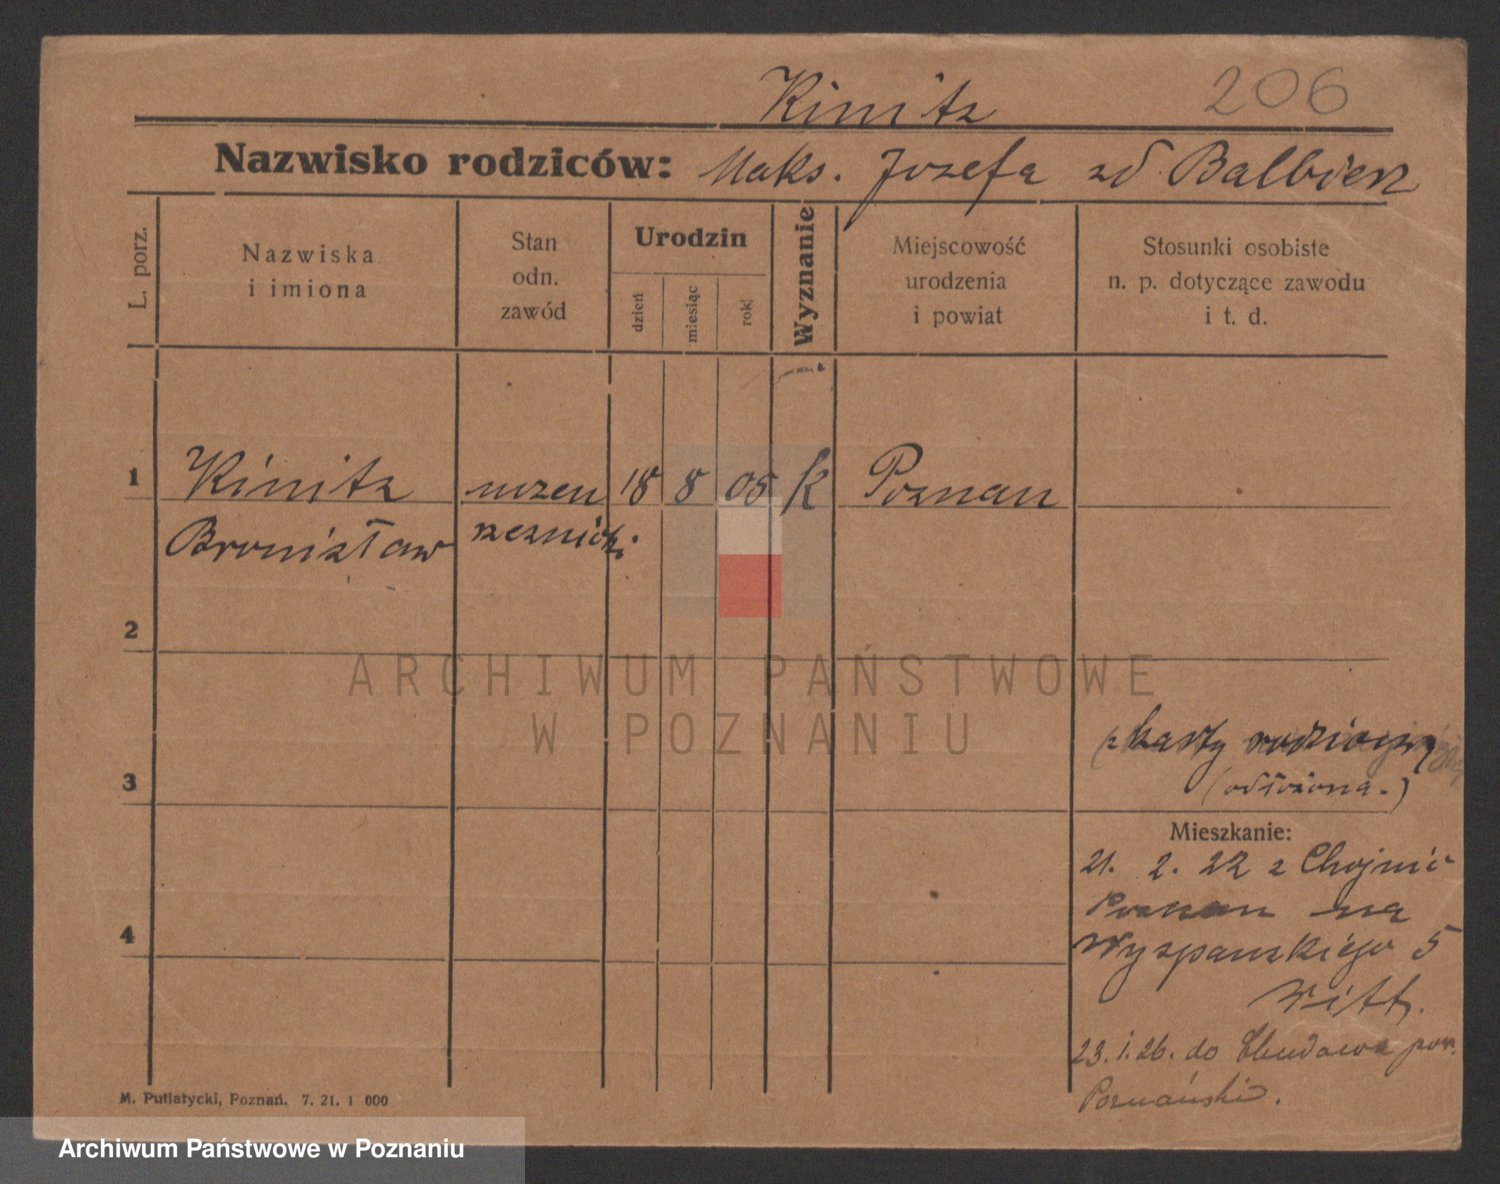 Kinitz 206
Nazwisko rodziców: Maks. Jozefa zd Balbierz
L. porz.
Nazwiska
i imiona
Stan
odn.
zawód
Urodzin
dzień
miesiąc
rok
Wyznanie
Miejscowość
urodzenia
i powiat
Stosunki osobiste
n. p. dotyczące zawodu
i t. d.
1 Kinitz uczen 18 8 05 k Poznan
Bronisław rzeznicki
2
ARCHIWUM PAŃSTWOWE
W POZNANIU
z karty
3
(odłożona.)
Mieszkanie:
21. 2. 22 z Chojnic
Poznan na
4
Wyspanskiego 5
Witt.
23. 1. 26. do pow.
Poznański.
M. Putiatycki, Poznań. 7. 21. 1 000
Archiwum Państwowe w Poznaniu